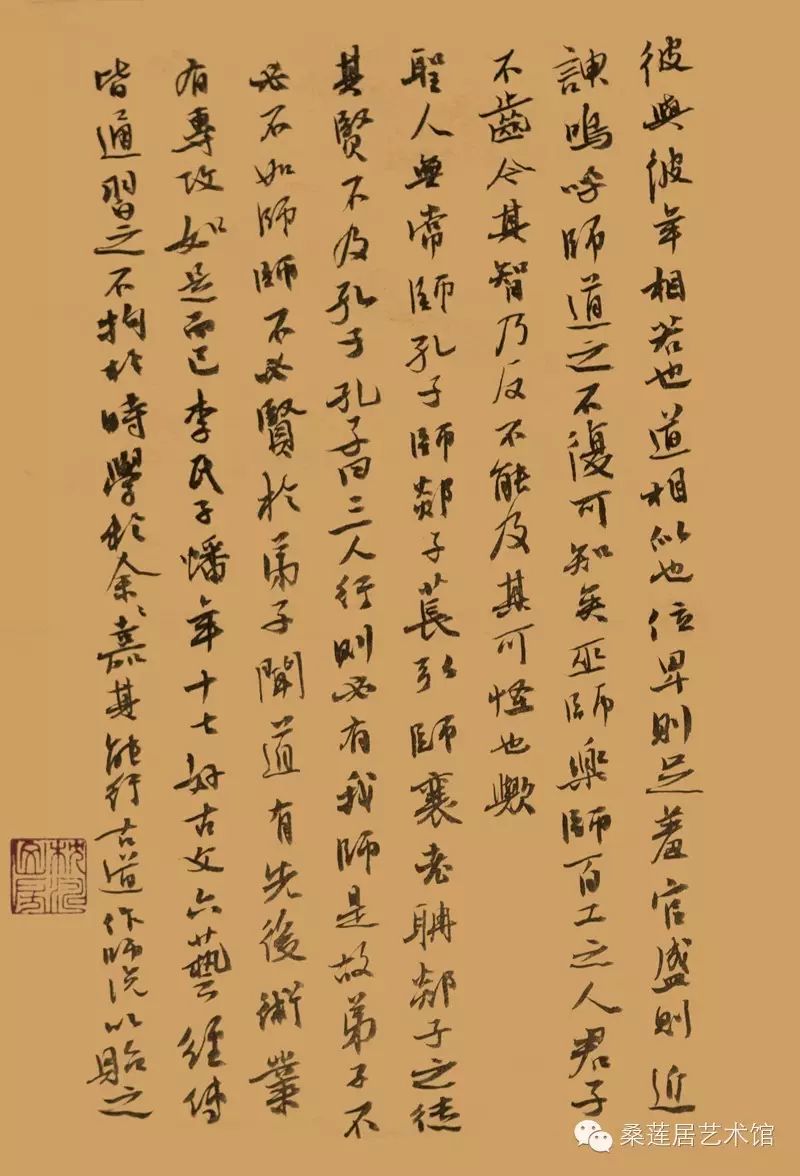 彼與彼年相若也道相似也位卑則足羞官盛則近
諛嗚呼師道之不復可知矣巫師樂師百工之人君子
不齒今其智乃反不能及其可怪也歟
聖人無常師孔子師郯子萇弘師襄老聃郯子之徒
其賢不及孔子孔子曰三人行則必有我師是故弟子不
必不如師師不必賢於弟子聞道有先後術業
有專攻如是而已李氏子蟠年十七好古文六藝經傳
皆通習之不拘於時學於余〻嘉其能行古道作師說以貽之
桑莲居艺术馆